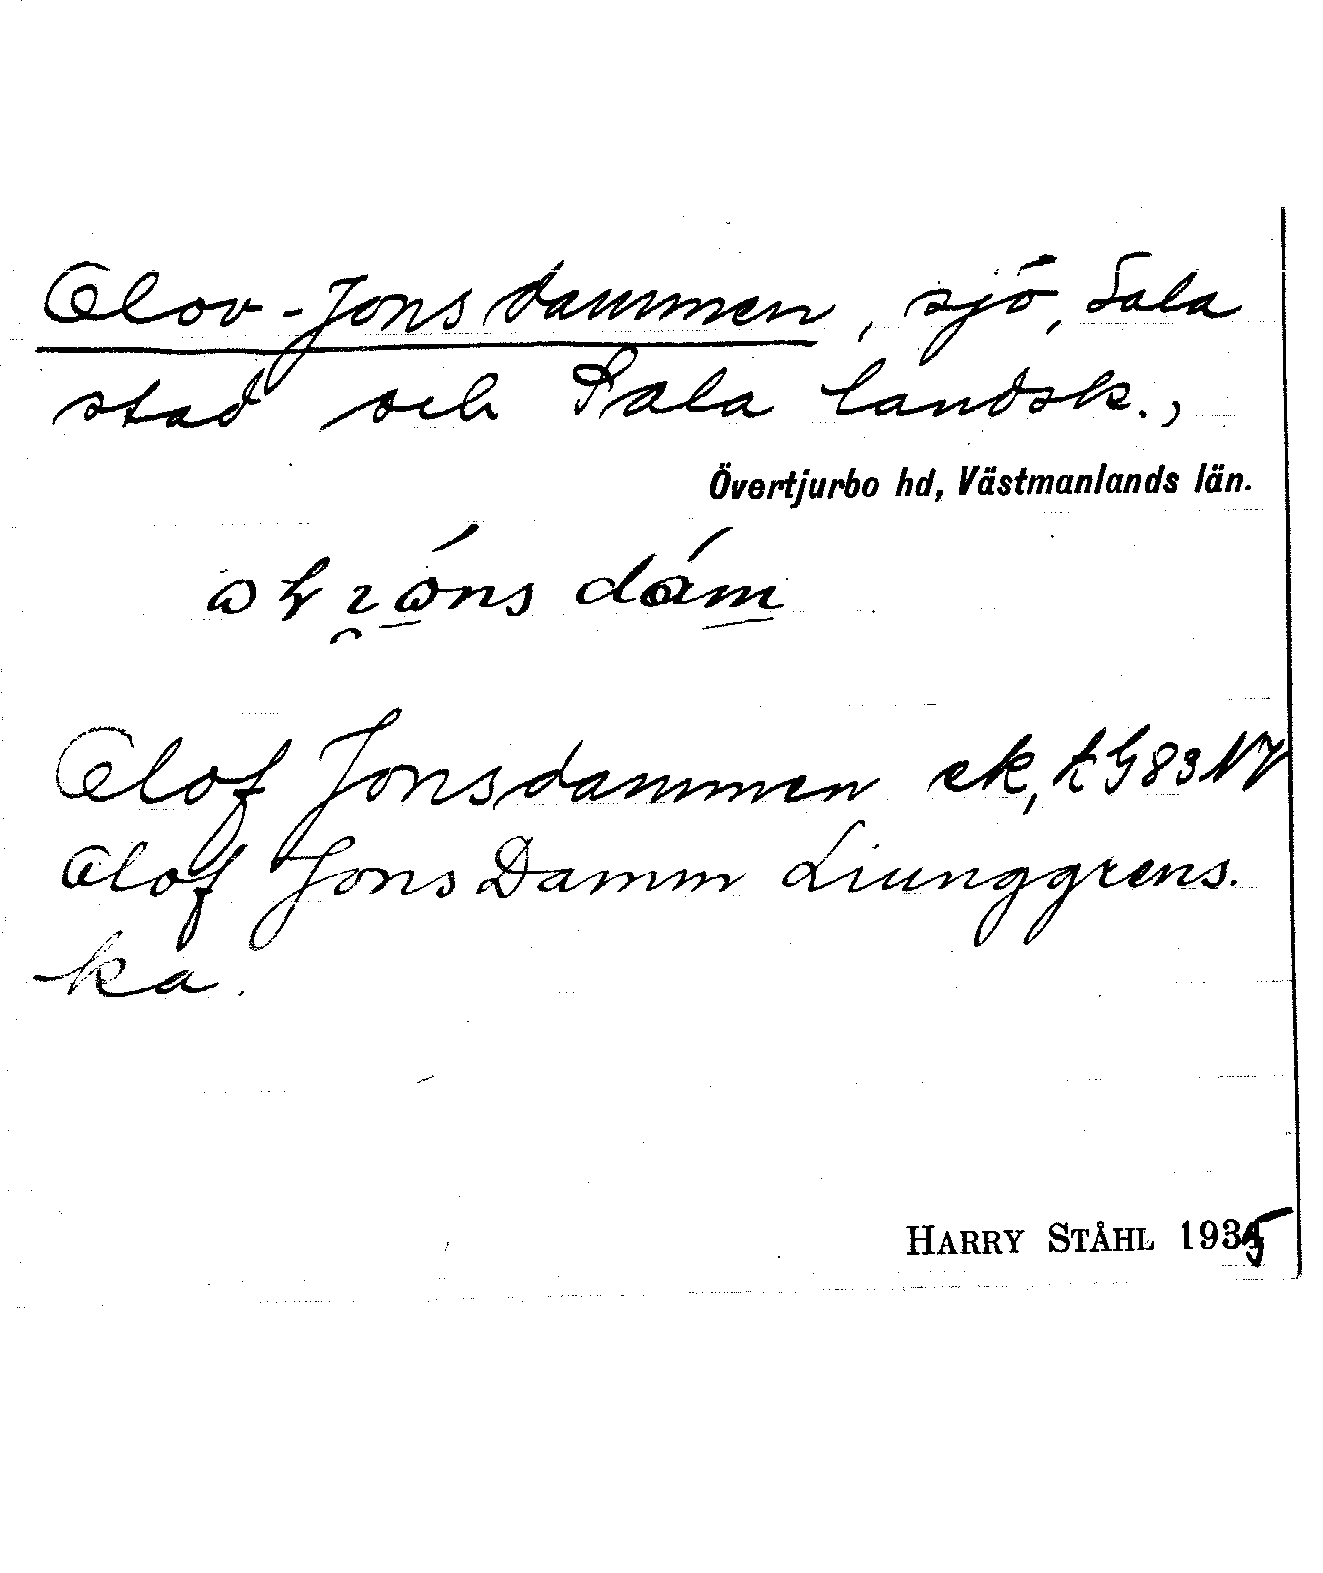 Olov-Jonsdammen, sjö, Sala
stad och Sala landsk.,
Övertjurbo hd, Västmanlands län.
Olof Jonsdammen ek, tG83NV
Olof Jons Damm Liunggrens.
ka.
HARRY STÅHL 1935